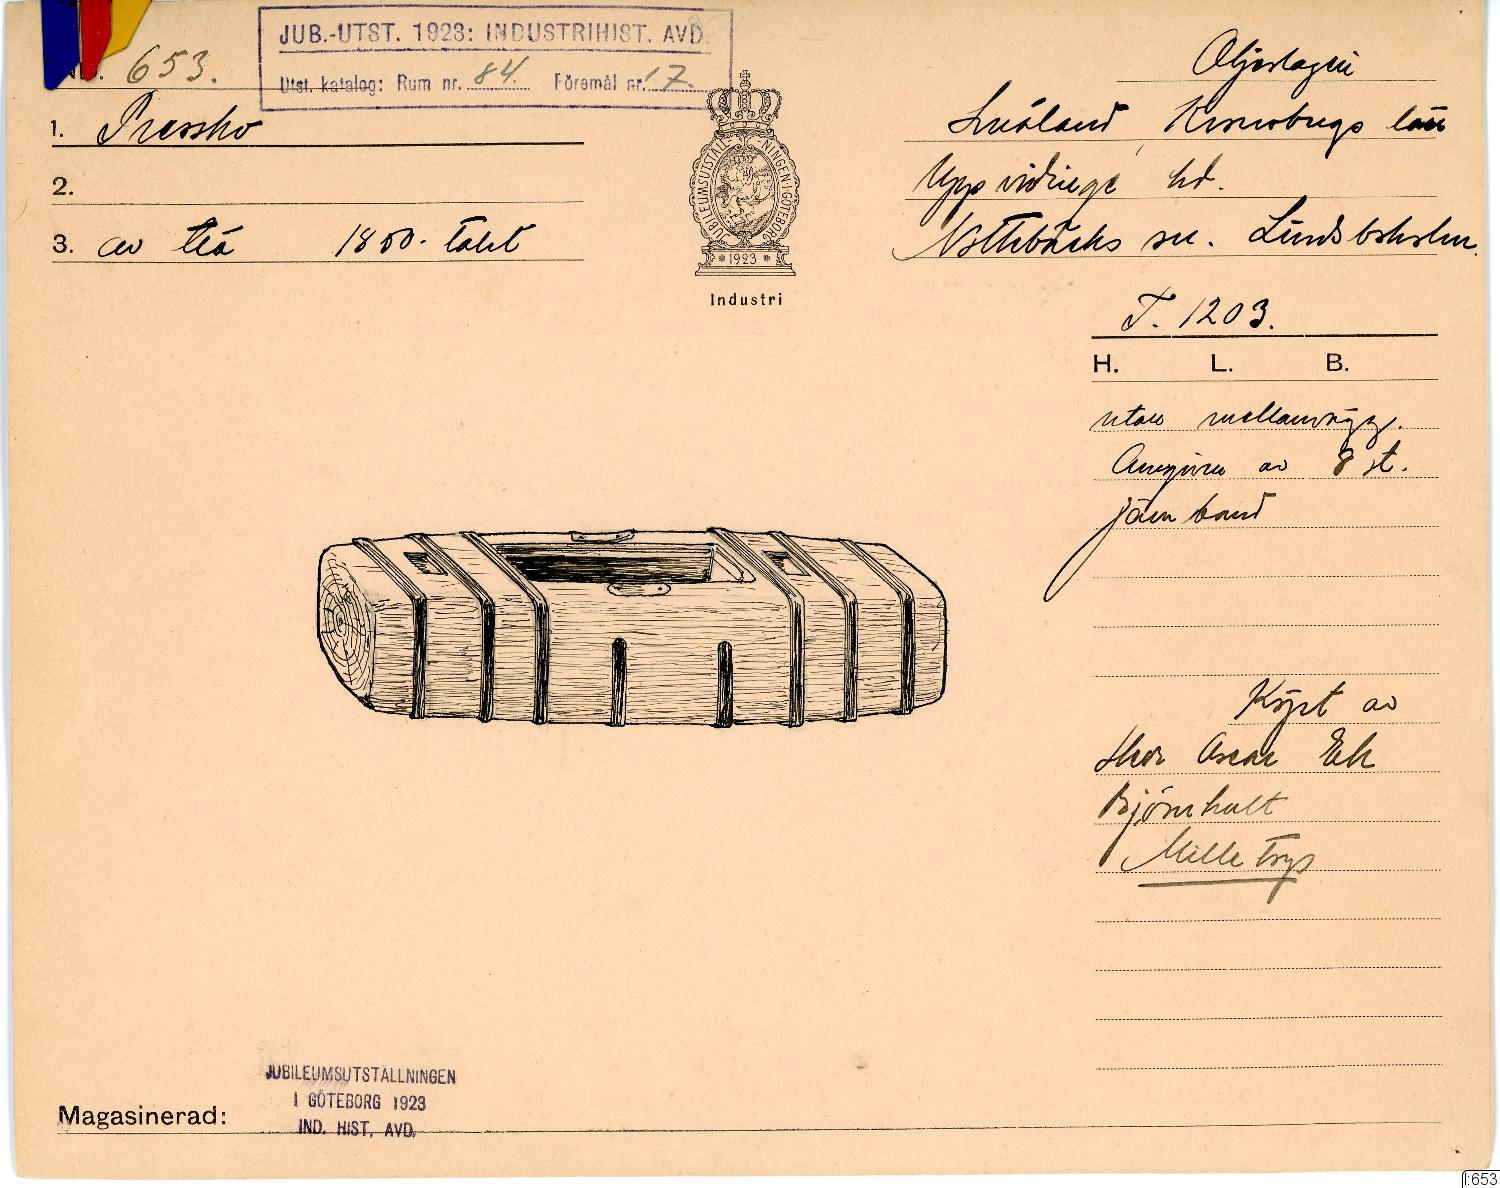 JUB.-UTST. 1923: INDUSTRIHIST. AVD.
Utst. katalog: Rum nr. 84. Föremål nr. 17.
653.
1. Pressho
2.
3. av trä 1800-talet
JUBILEUMSUTSTÄLLNINGEN·I·GÖTEBORG
1923
Industri
Oljeslageri
Småland Kronobergs län
Uppvidinge hd.
Nottebäcks sn. Lindsboholm.
T. 1203.
H. L. B.
utan mellanvägg.
Omgiven av 8 st.
järnband
Köpt av
Oscar Ek
Björnhult
Milletorp
Magasinerad:
JUBILEUMSUTSTÄLLNINGEN
I GÖTEBORG 1923
IND. HIST. AVD.
I:653